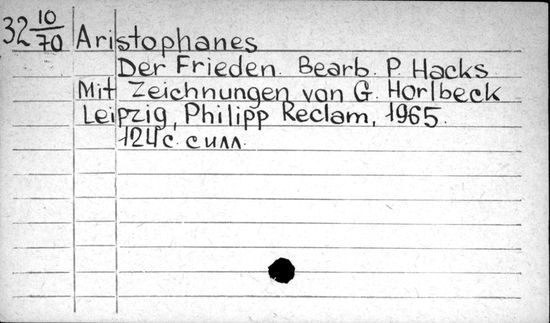 32 10/70 Aristophanes
Der Frieden. Bearb. P. Hacks
Mit Zeichnungen von G. Horlbeck
Leipzig, Philipp Reclam, 1965.
124 с. с илл.